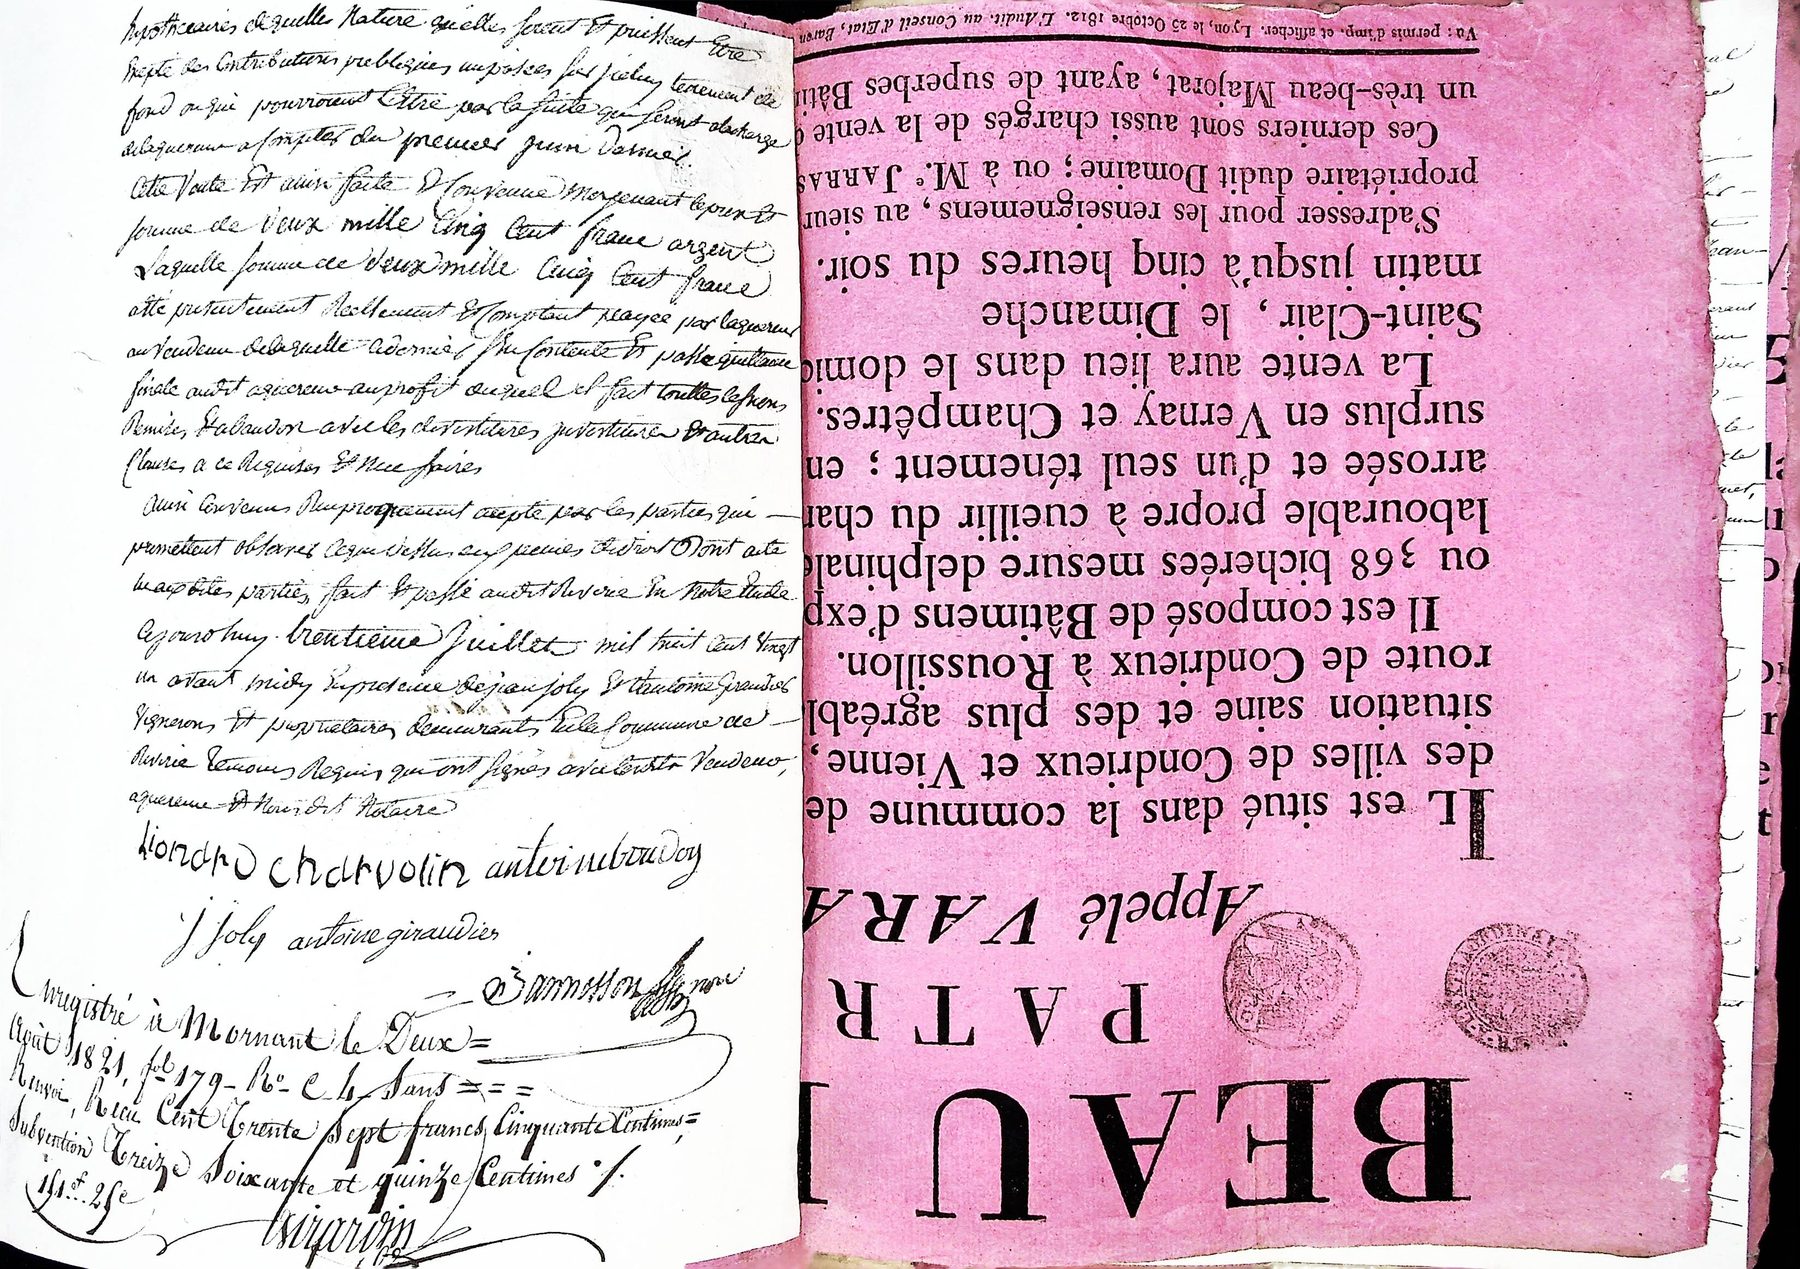 hypothecaires de quelles Nature quelles soient Et puissent Etre
Exepté des Contributions publiques imposées sur ledit tenement de
fond ou qui pourroient L'Etre par la suite qui seront a la charge
de laquereur a Compter du premier juin dernier.
Cette Vente Est ainsi faitte Et Convenue moyenant le prix Et
somme de deux mille Cinq Cent franc argent
Laquelle somme de deux mille Cinq Cent franc
a été presentement Reellement Et Comptant payée par laquereur
au Vendeur de laquelle ce dernier sen Contente Et passe quittance
finale audit aquereur au profit duquel il fait touttes
Remises, Et abandon avec les divestitures investitures Et autres
Clauses a ce Requises Et necessaires
Ainsi Convenus Reciproquement accepté par les parties qui
promettent observer ce que dessus aux peines de droit Dont acte
auxdites parties, fait Et passé audit Riverie En Notre Etude
Cejourdhuy trentieme juillet mil huit Cent Vingt
un avant midy En presence de jean joly Et d'antoine Giraudier
Vignerons Et proprietaires demeurants En la Commune de
Riverie temoins Requis qui ont signés avec lesdits Vendeur,
aquereur Et Nous dit Notaire
Liondrd Chdrvolin antoine boudoy
j joly antoine giraudier
Bannosson nore
Enregistré à Mornant le Deux
Août 1821, fol 179 Ro C 4 Sans
Renvoi, Recu Cent Trente Sept francs Cinquante Centimes
Subvention Treize Soixante et quinze Centimes %.
151 f. 25 c
Girardin
BEAU
PATR
Appelé VARA
IL est situé dans la commune de
des villes de Condrieux et Vienne,
situation saine et des plus agréabl
route de Condrieux à Roussillon.
Il est composé de Bâtimens d'exp
ou 368 bicherées mesure delphinale
labourable propre à cueillir du chan
arrosée et d'un seul ténement ; en
surplus en Vernay et Champêtres.
La vente aura lieu dans le domic
Saint-Clair, le Dimanche
matin jusqu'à cinq heures du soir.
S'adresser pour les renseignemens, au sieur
propriétaire dudit Domaine ; ou à M.e JARRAS
Ces derniers sont aussi chargés de la vente d
un très-beau Majorat, ayant de superbes Bâtin
Vu : permis d'imp. et afficher. Lyon, le 25 Octobre 1812. L'Audit. au Conseil d'Etat, Baron